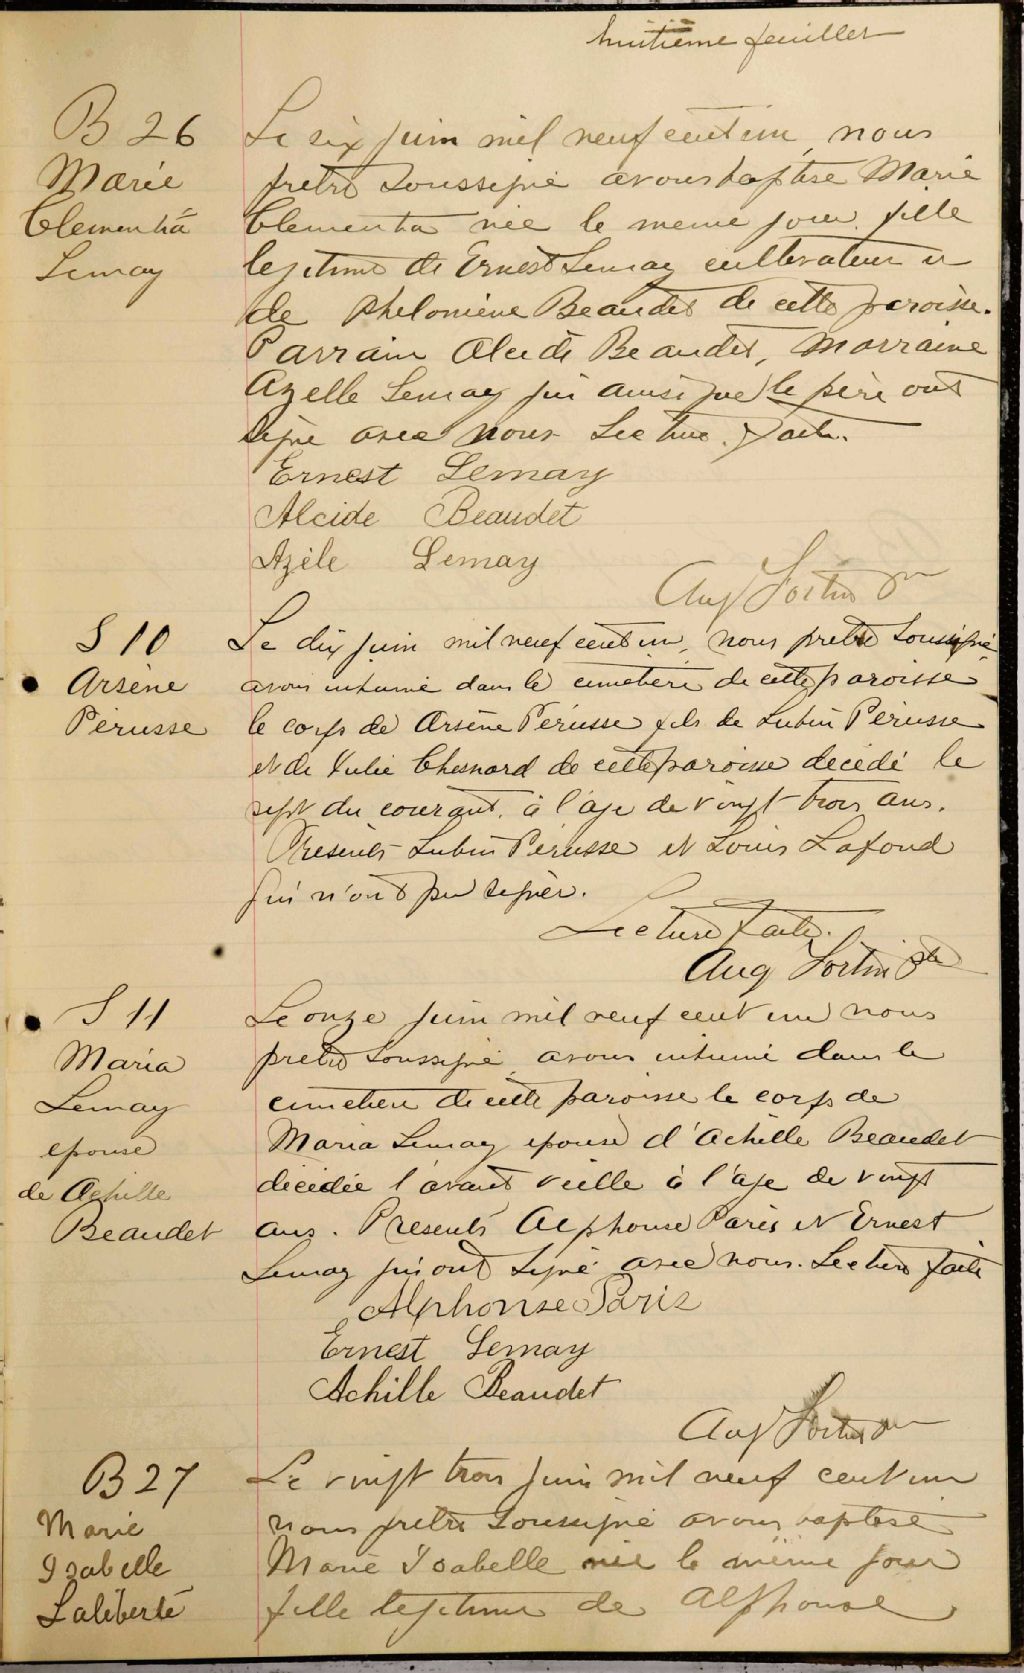 huitième feuillet
B 26
Marie
Clementia
Lemay
Le six juin mil neuf cent un, nous
pretre soussigné avons baptisé Marie
Clementia née le meme jour fille
legitime de Ernest Lemay cultivateur et
de Philomène Beaudet de cette paroisse.
Parrain Alcide Beaudet, Marraine
Azelle Lemay qui ainsi que le père ont
signé avec nous. Lecture faite.
Ernest Lemay
Alcide Beaudet
Azèle Lemay
Aug Fortin ptr
S 10
Arsène
Pérusse
Le dix juin mil neuf cent un, nous pretre soussigné
avons inhumé dans le cimetière de cette paroisse
le corps de Arsène Pérusse fils de Lubin Pérusse
et de Julie Chesnard de cette paroisse décédé le
sept du courant, à l'age de vingt trois ans.
Présents Lubin Pérusse et Louis Lafond
qui n'ont pu signer.
Lecture faite.
Aug Fortin ptr
S 11
Maria
Lemay
epouse
de Achille
Beaudet
Le onze juin mil neuf cent un nous
pretre soussigné avons inhumé dans le
cimetière de cette paroisse le corps de
Maria Lemay epouse d'Achille Beaudet
décédée l'avant veille à l'age de vingt
ans. Présents Alphonse Paris et Ernest
Lemay qui ont signé avec nous. Lecture faite
Alphonse Paris
Ernest Lemay
Achille Beaudet
Aug Fortin ptr
B 27
Marie
Isabelle
Laliberté
Le vingt trois juin mil neuf cent un
nous pretre soussigné avons baptisé
Marie Isabelle née le même jour
fille legitime de Alphonse